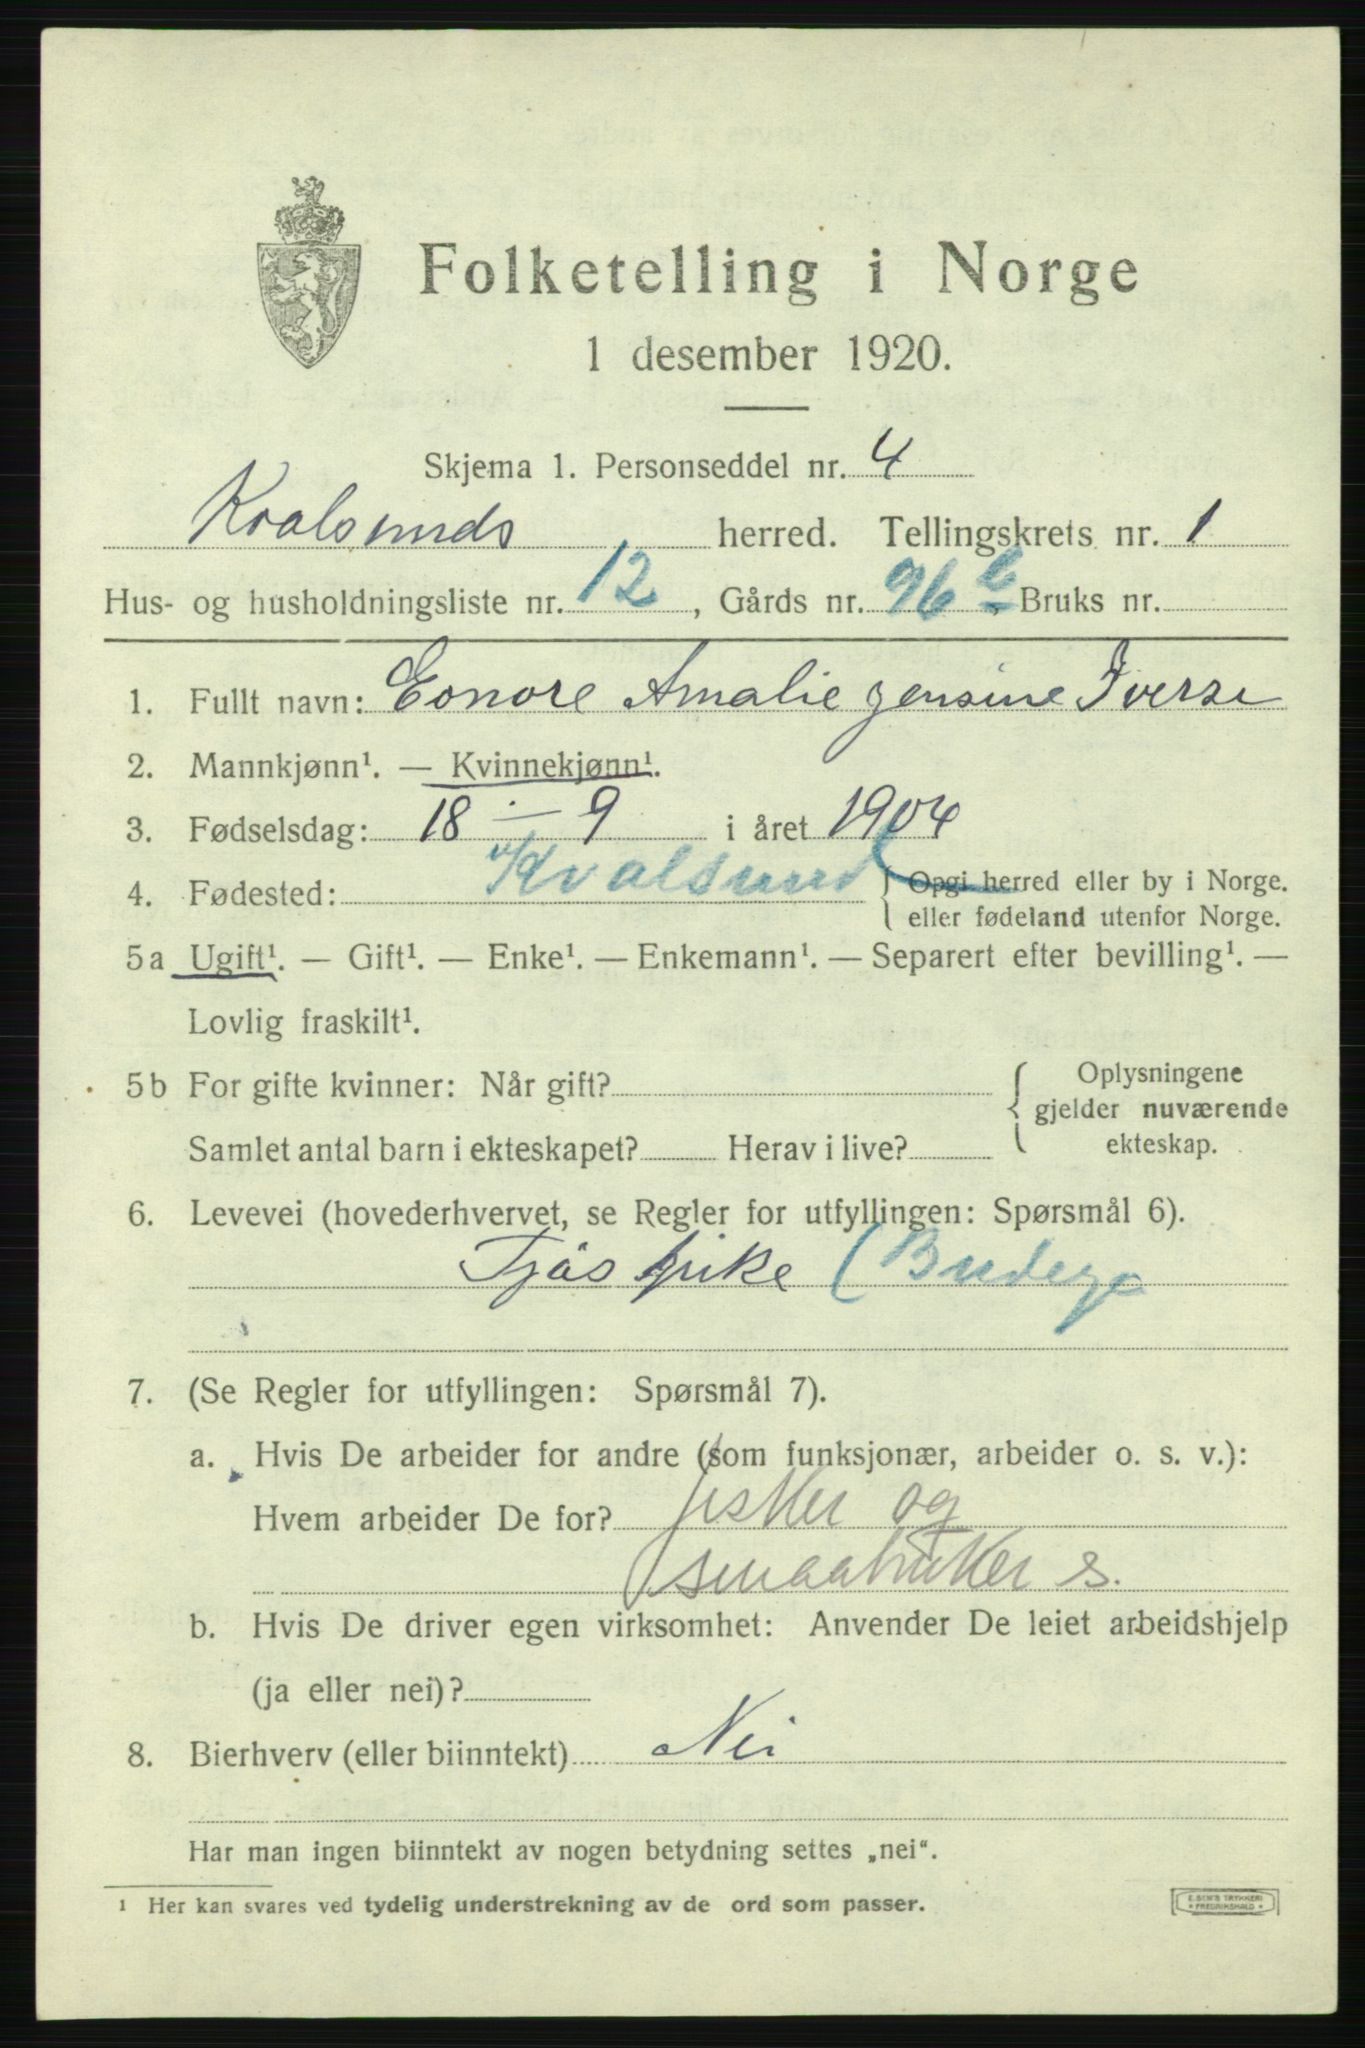 Folketelling i Norge
1 desember 1920.
Skjema 1. Personseddel nr. 4
Kvalsunds herred. Tellingskrets nr. 1
Hus- og husholdningsliste nr. 12, Gårds nr. 96, Bruks nr.
1. Fullt navn: Eonore Amalie Jensine Iverse
2. Mannkjønn¹. — Kvinnekjønn¹.
3. Fødselsdag: 18 — 9 i året 1904
4. Fødested: Kvalsund { Opgi herred eller by i Norge.
eller fødeland utenfor Norge.
5a Ugift¹. — Gift¹. — Enke¹. — Enkemann¹. — Separert efter bevilling¹. —
Lovlig fraskilt¹.
5b For gifte kvinner: Når gift? { Oplysningene
gjelder nuværende
Samlet antal barn i ekteskapet? Herav i live? ekteskap.
6. Levevei (hovederhvervet, se Regler for utfyllingen: Spørsmål 6).
(Budeye
7. (Se Regler for utfyllingen: Spørsmål 7).
a. Hvis De arbeider for andre (som funksjonær, arbeider o. s. v.):
Hvem arbeider De for? fisker og
smaabruker s.
b. Hvis De driver egen virksomhet: Anvender De leiet arbeidshjelp
(ja eller nei)?
8. Bierhverv (eller biinntekt) Nei
Har man ingen biinntekt av nogen betydning settes „nei“.
¹ Her kan svares ved tydelig understrekning av de ord som passer.
E. SEM'S TRYKKERI
* FREDRIKSHALD *